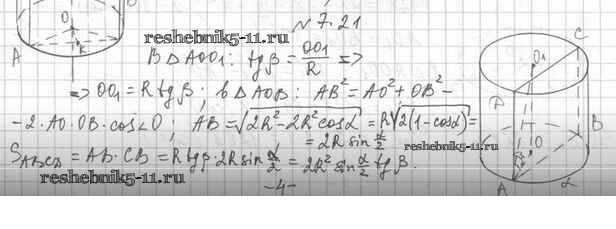 № 7.21
reshebnik5-11.ru
В Δ AOO₁: tgβ = OO₁/R =>
=> OO₁ = R tgβ; в Δ AOB: AB² = AO² + OB² -
- 2·AO·OB·cos∠O; AB = √(2R² - 2R²cosα) = R√(2(1-cosα)) =
= 2R sin α/2
S_ABCD = AD·CB = R tgβ·2R sin α/2 = 2R² sin α/2 tgβ.
reshebnik5-11.ru
reshebnik5-11.ru
-4-
O₁
B
A
K
C
O₁
D
O
B
A
α